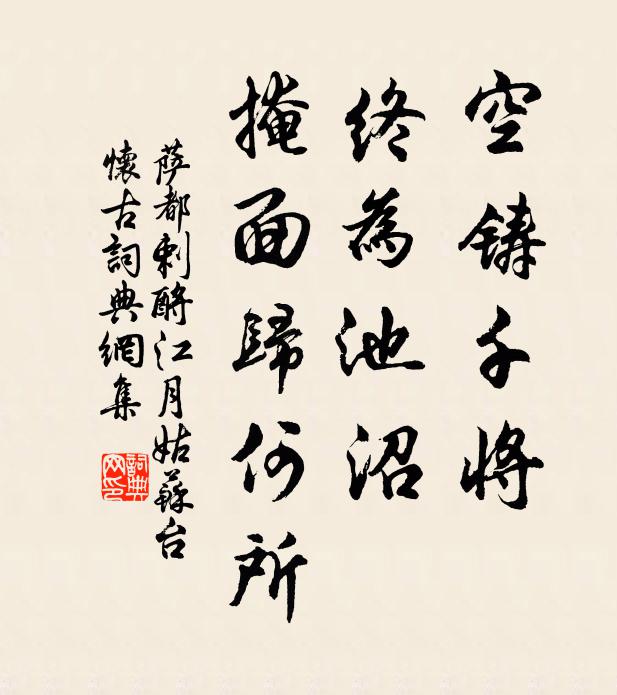 空鑄千將
終為池沼
掩面歸何所
萨都剌酹江月姑蘇台
懷古詞典網集
詞典
网印